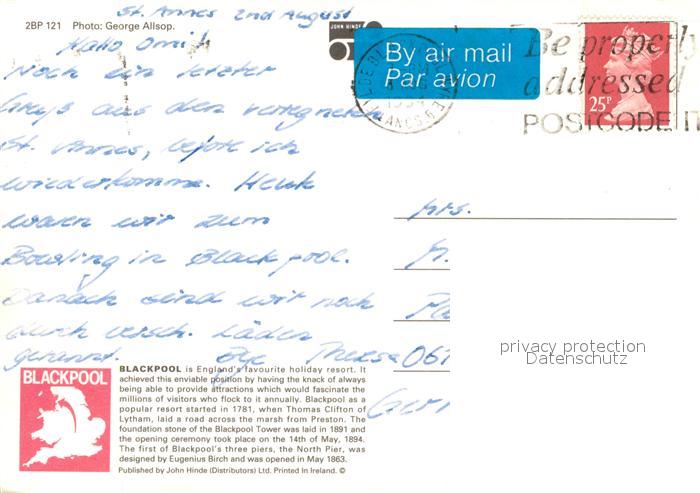 St. Annes 2nd August
2BP 121 Photo: George Allsop.
Hallo Omi!
Noch ein letzter
Gruß aus dem verregneten
St. Annes, before ich
wiederkomme. Heute
waren wir zum
Bowling in Blackpool.
Danach sind wir noch
durch versch. Läden
gerannt. Bye Theresa
JOHN HINDE
By air mail
Par avion
Be properly
addressed
POSTCODE IT
25P
LANCS
Mrs.
M.
061
Ger
privacy protection
Datenschutz
BLACKPOOL
BLACKPOOL is England's favourite holiday resort. It
achieved this enviable position by having the knack of always
being able to provide attractions which would fascinate the
millions of visitors who flock to it annually. Blackpool as a
popular resort started in 1781, when Thomas Clifton of
Lytham, laid a road across the marsh from Preston. The
foundation stone of the Blackpool Tower was laid in 1891 and
the opening ceremony took place on the 14th of May, 1894.
The first of Blackpool's three piers, the North Pier, was
designed by Eugenius Birch and was opened in May 1863.
Published by John Hinde (Distributors) Ltd. Printed In Ireland. ©